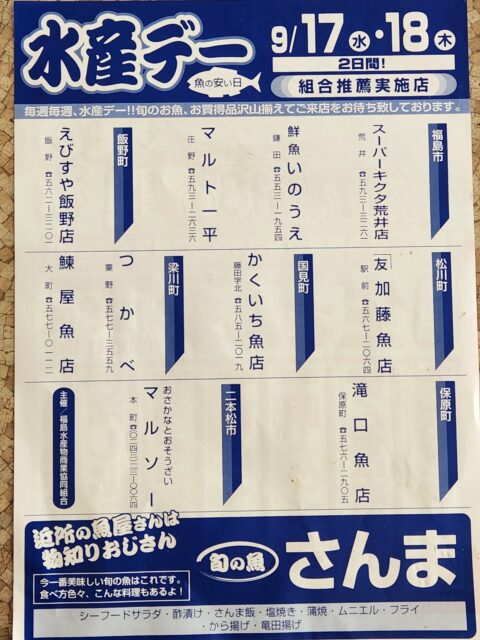 水産デー
魚の安い日
9/17水・18木
2日間!
組合推薦実施店
毎週毎週、水産デー!!旬のお魚、お買得品沢山揃えてご来店をお待ち致しております。
福島市
スーパーキクタ荒井店
荒井 ☎五九三―三一二六一
鮮魚いのうえ
鎌田 ☎五五三―四九五五
マルト一平
庄野 ☎五九三―二六三六
飯野町
えびすや飯野店
飯野 ☎五六二―三二〇一
松川町
友加藤魚店
駅前 ☎五六七―二〇六四
国見町
かくいち魚店
藤田字北 ☎五八五―二〇一九
梁川町
つかべ
粟野 ☎五七七―三五五九
鰊屋魚店
大町 ☎五七七―〇一一二
保原町
滝口魚店
保原町 ☎五七六―二九〇五
二本松市
おさかなとおそうざい
マルソー
本町 ☎〇二四三―二三―〇〇六四
主催/福島水産物商業協同組合
近所の魚屋さんは
物知りおじさん
今一番美味しい旬の魚はこれです。
食べ方色々、こんな料理もあるよ!
旬の魚
さんま
シーフードサラダ・酢漬け・さんま飯・塩焼き・蒲焼・ムニエル・フライ
・から揚げ・竜田揚げ